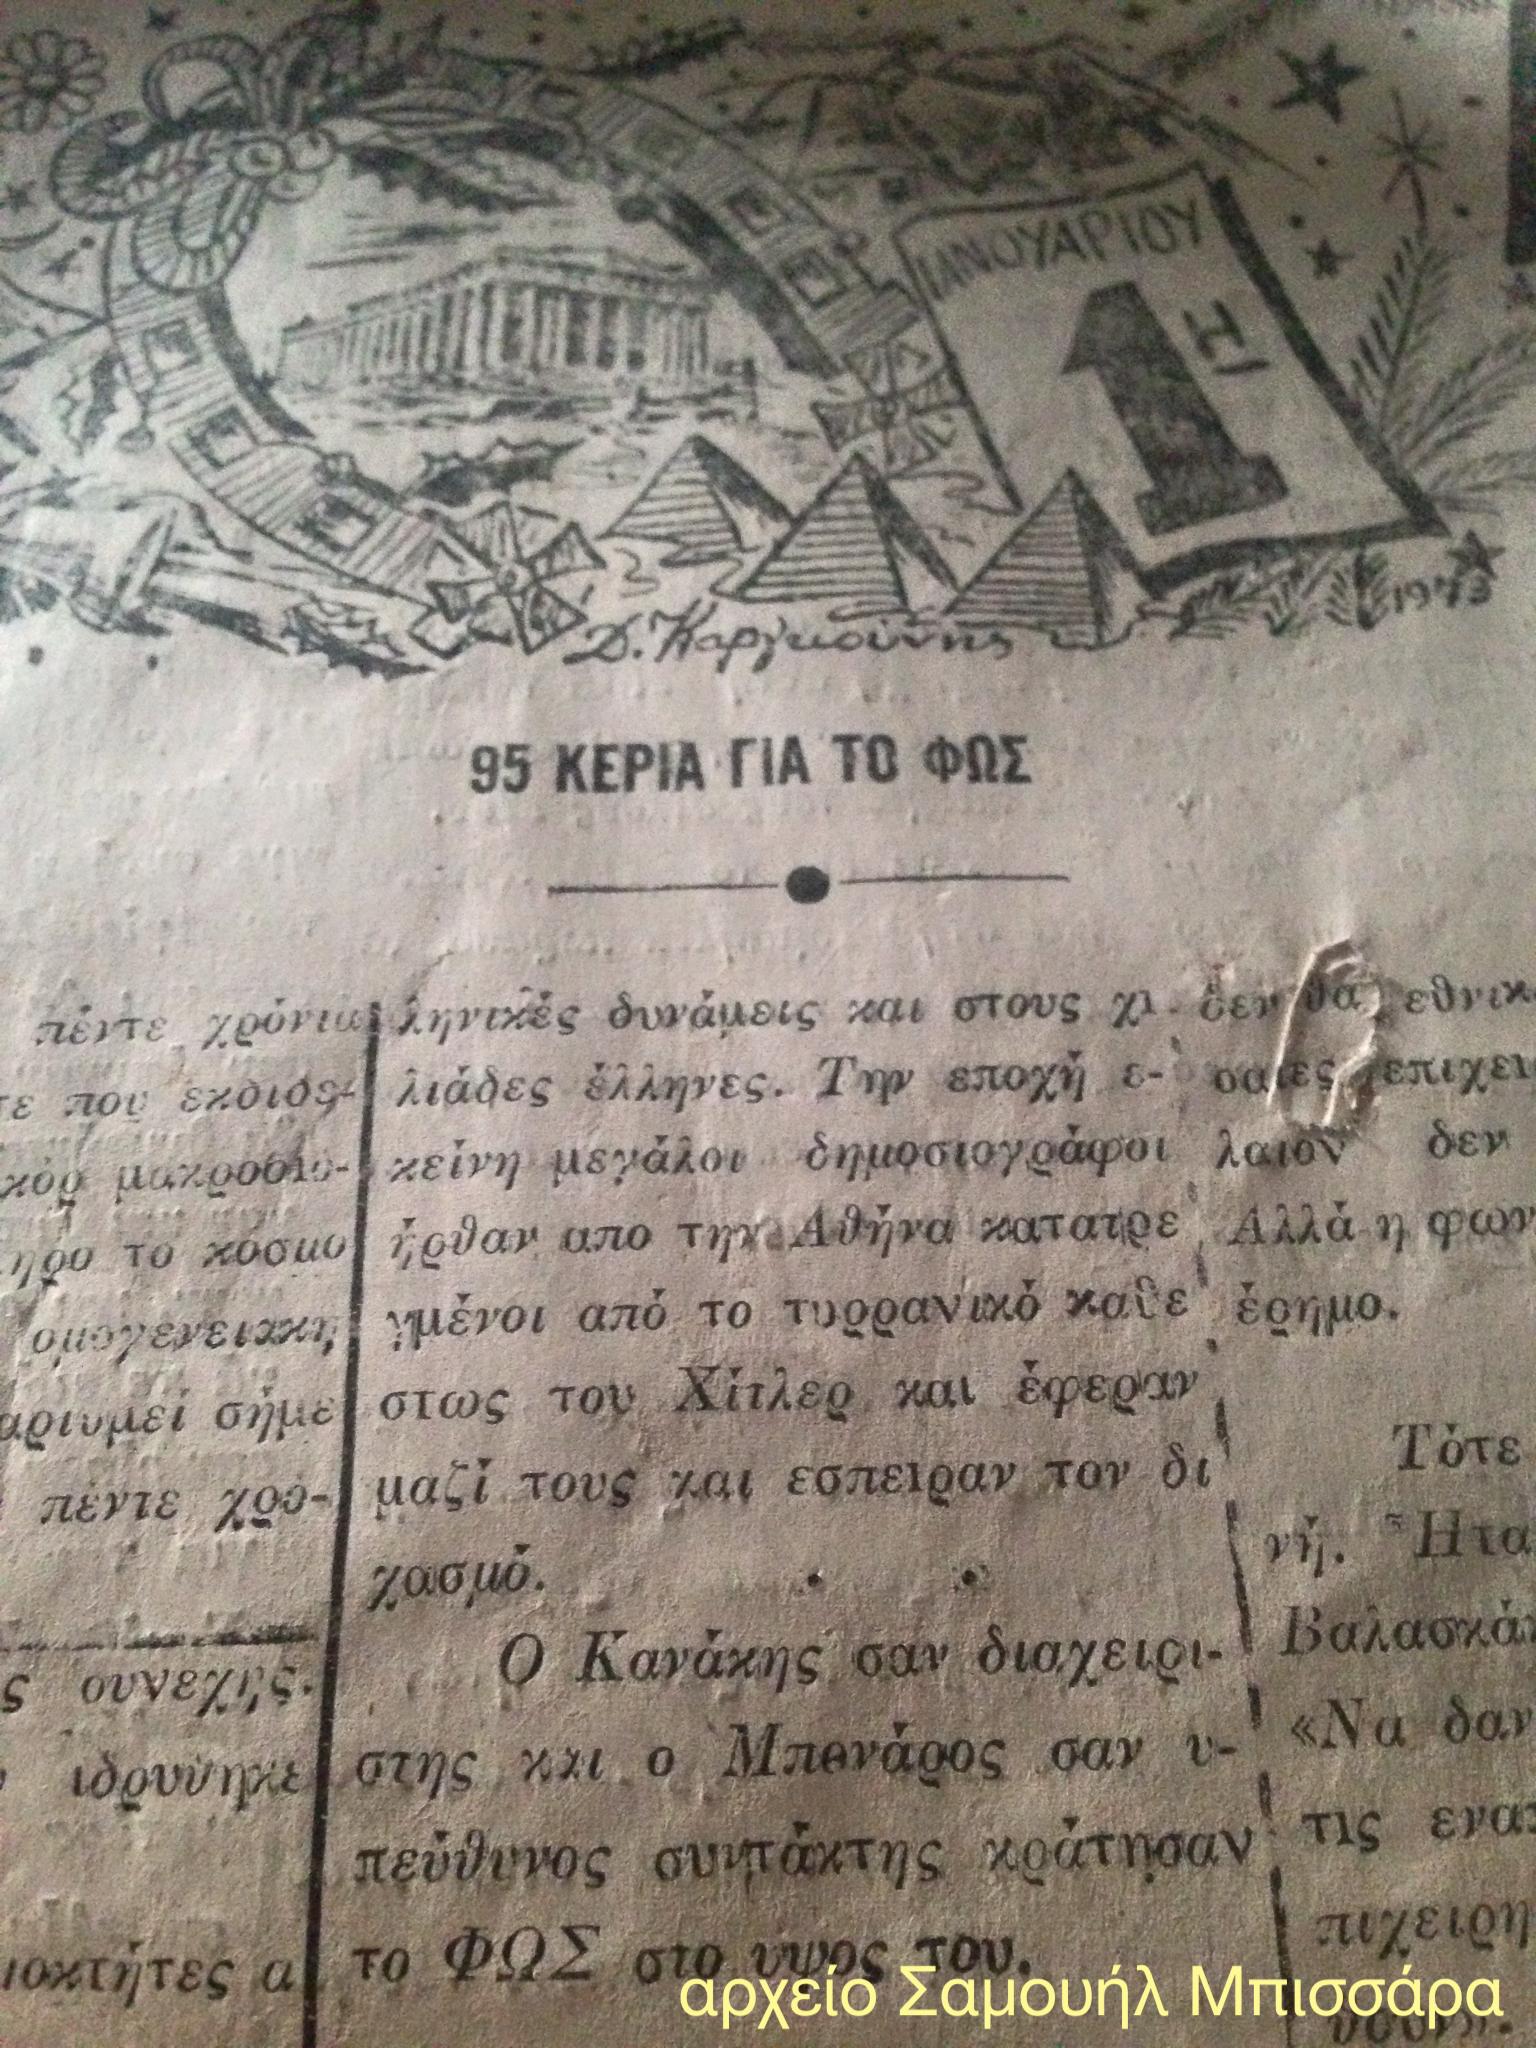 ΙΑΝΟΥΑΡΙΟΥ
1Η
1973
Δ. Καργκιούνης
95 ΚΕΡΙΑ ΓΙΑ ΤΟ ΦΩΣ
πέντε χρόνια
που εκδιδε-
μακροσιο-
το κόσμο
ομογενειακη
σήμε
πέντε χρο-
συνεχής.
ιδρυθηκε
α
ληνικές δυνάμεις και στους χι
λιάδες έλληνες. Την εποχή ε-
κείνη μεγάλοι δημοσιογράφοι
ήρθαν απο την Αθήνα κατατρε
γμένοι από το τυρρανικό καθε
στως του Χίτλερ και έφεραν
μαζί τους και εσπειραν τον δι
χασμό.
Ο Κανάκης σαν διαχειρι-
στης και ο Μπενάρος σαν υ-
πεύθυνος συντάκτης κράτησαν
το ΦΩΣ στο ύψος του.
δεν θα εθνικ
σαιες επιχει
λαιον δεν
Αλλά η φων
έρημο.
Τότε
νή. Ήτα
Βαλασκά
«Να δαν
τις ενα
πιχειρη
αρχείο Σαμουήλ Μπισσάρα